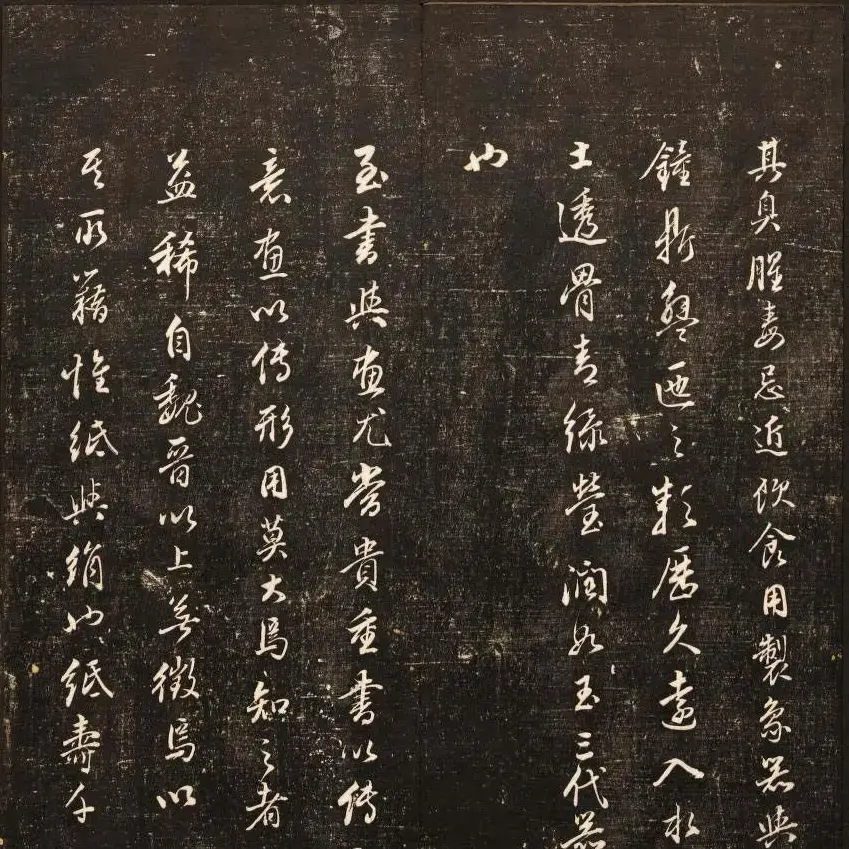 其臭腥毒忌近飲食用製象器與
鐘鼎盤匜之類歷久遠入水
土透骨青綠瑩潤如玉三代器
也
至書與畫尤當貴重書以傳
意畫以傳形用莫大焉知之者
益稀自魏晉以上無徵焉以
其所藉惟紙與絹也紙壽千